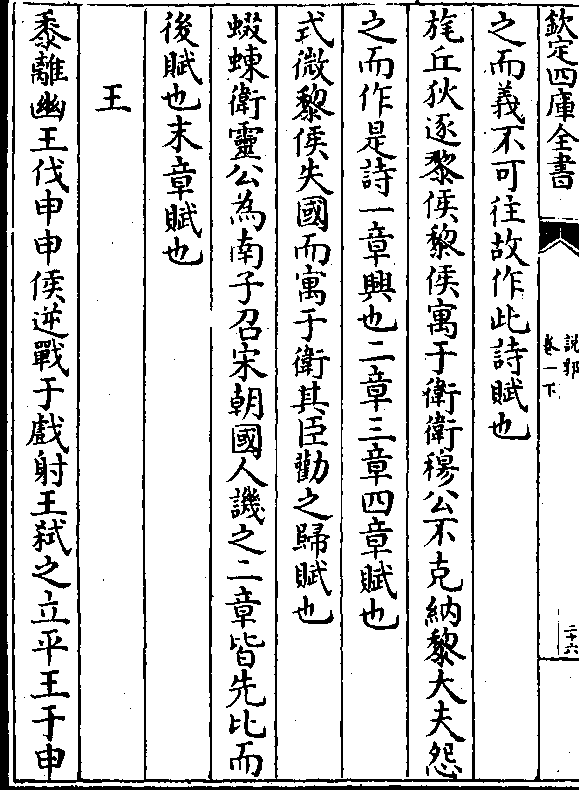 欽定四庫全書
說郛
卷一下
二十六
之而義不可往故作此詩賦也
旄丘狄逐黎侯黎侯寓于衛衛穆公不克納黎大夫怨
之而作是詩一章興也二章三章四章賦也
式微黎侯失國而寓于衛其臣勸之歸賦也
蝃蝀衛靈公為南子召宋朝國人譏之二章皆先比而
後賦也末章賦也
王
黍離幽王伐申申侯逆戰于戲射王弑之立平王于申